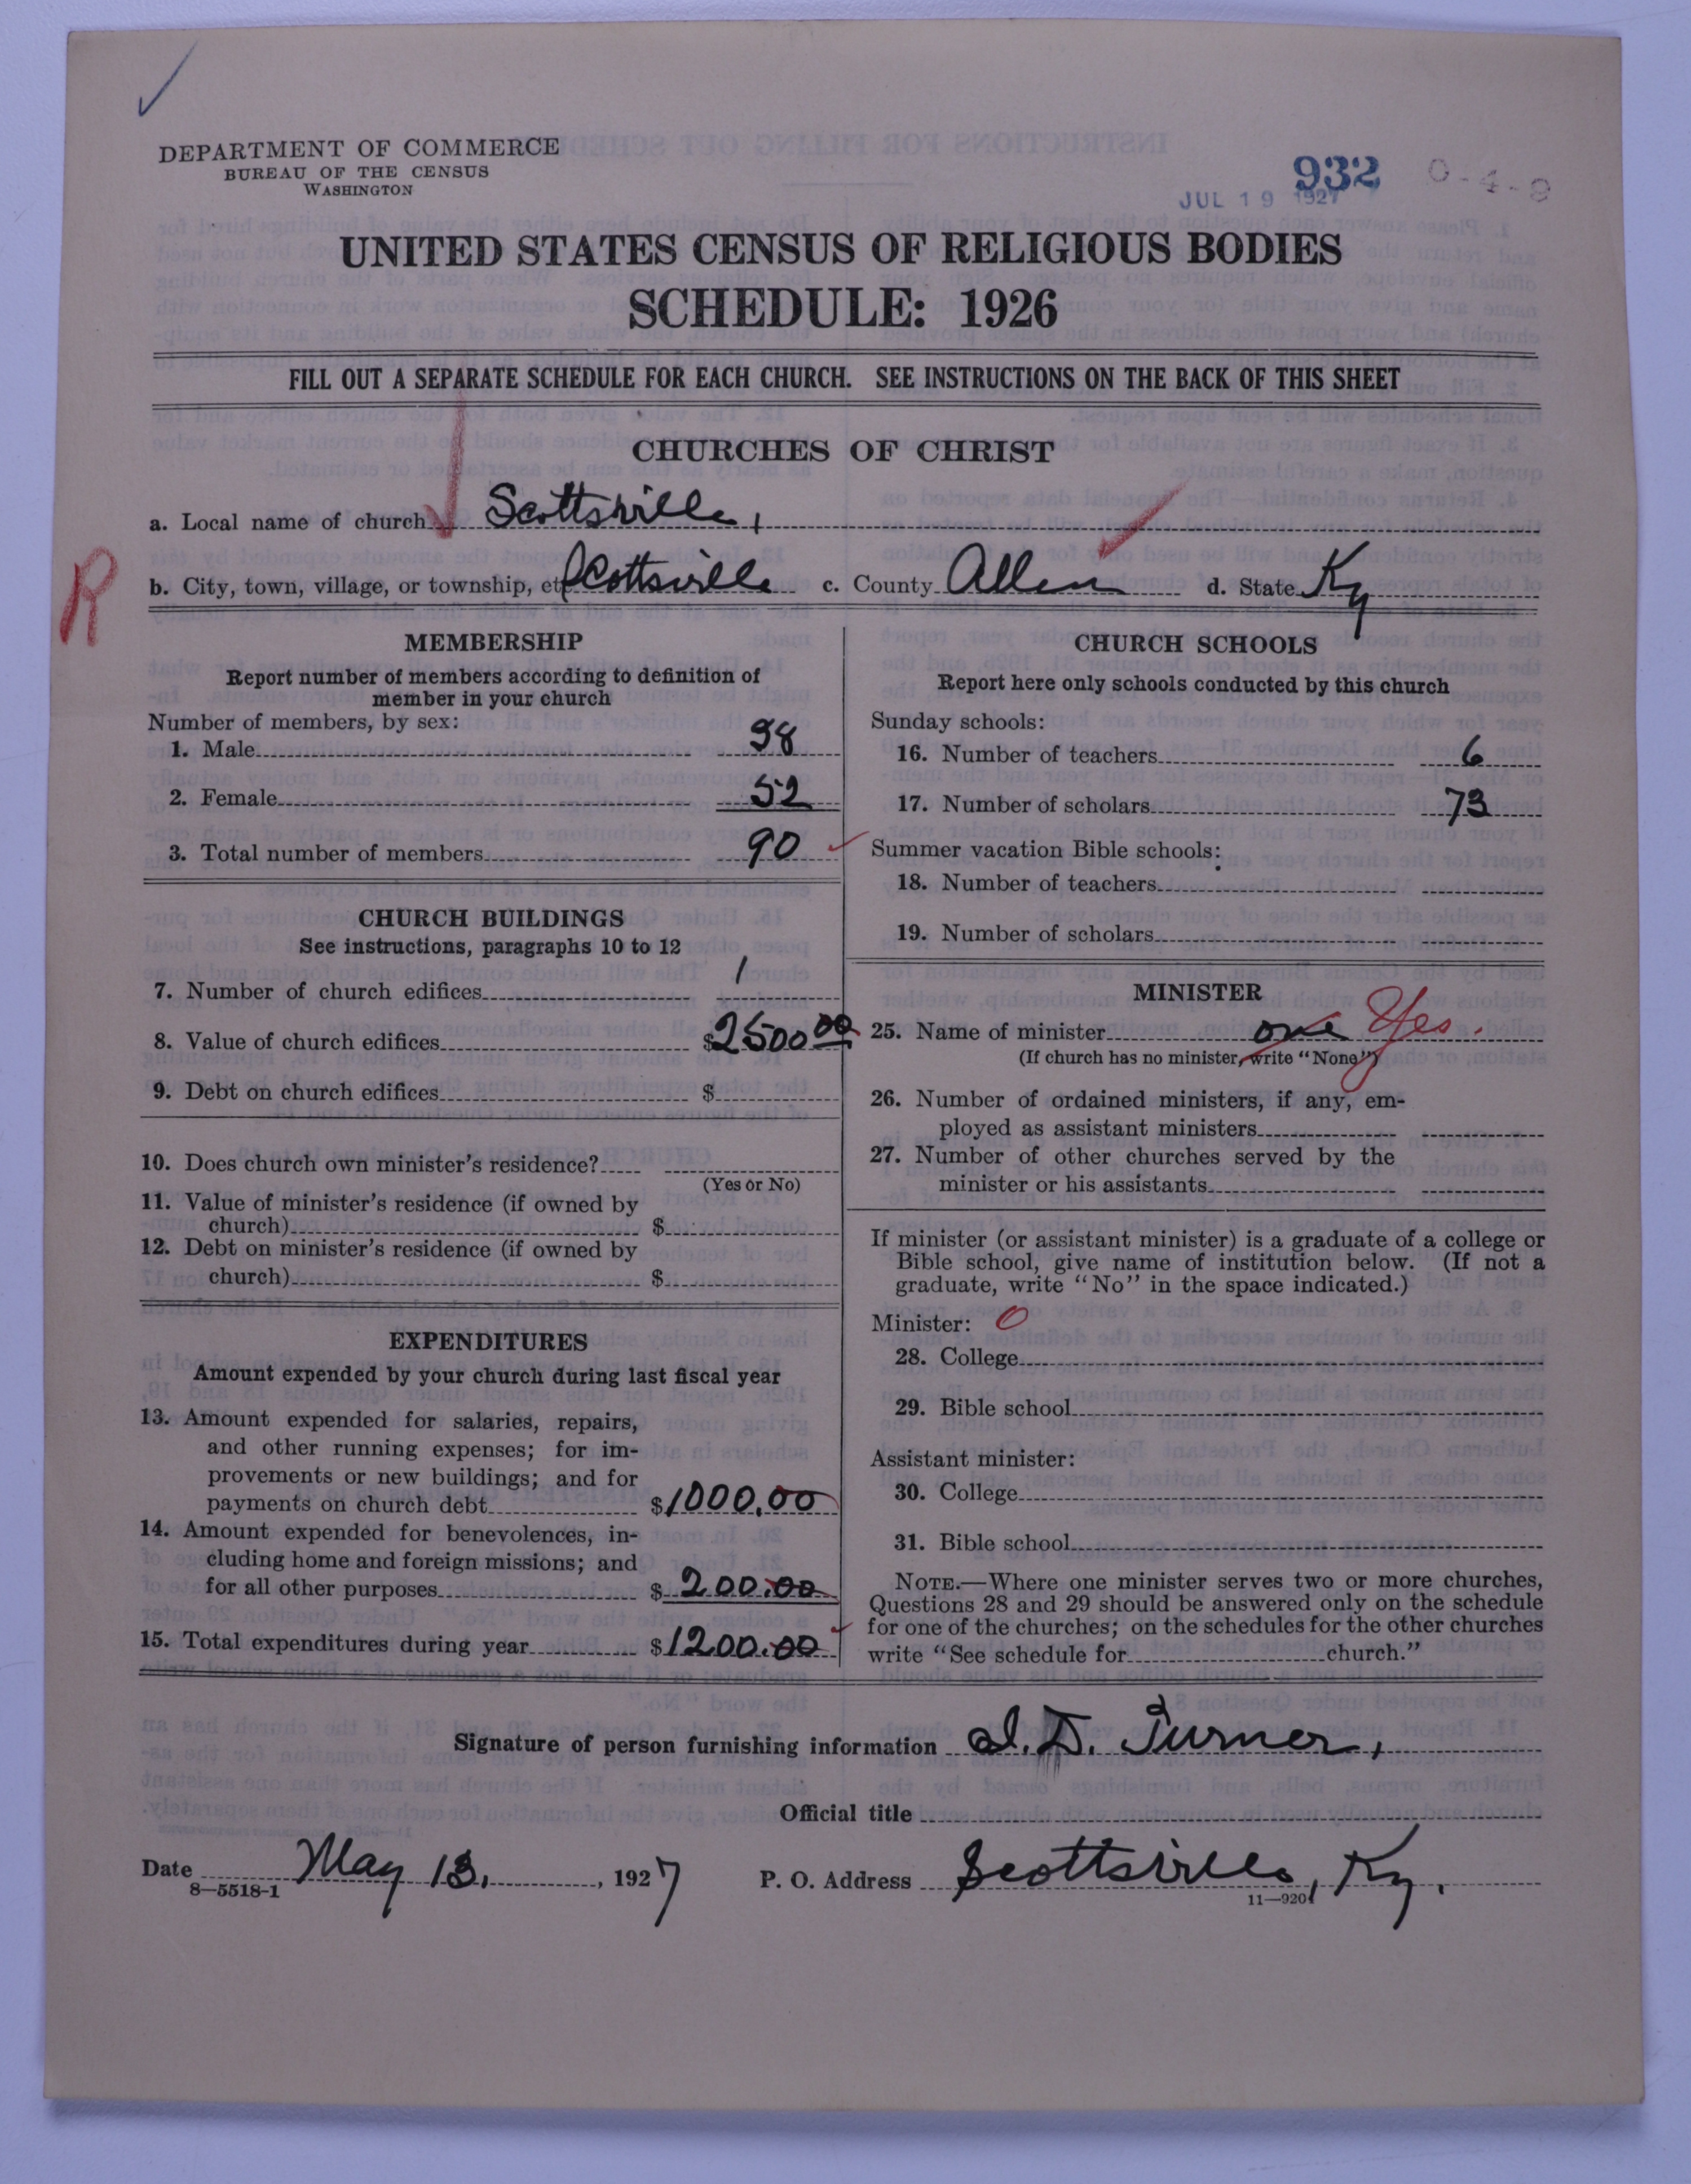 DEPARTMENT OF COMMERCE
BUREAU OF THE CENSUS
WASHINGTON
932 0-4-9
JUL 19 1927
UNITED STATES CENSUS OF RELIGIOUS BODIES
SCHEDULE: 1926
FILL OUT A SEPARATE SCHEDULE FOR EACH CHURCH. SEE INSTRUCTIONS ON THE BACK OF THIS SHEET
CHURCHES OF CHRIST
a. Local name of church Scottsville,
R
b. City, town, village, or township, etc. Scottsville c. County Allen d. State Ky
MEMBERSHIP
Report number of members according to definition of
member in your church
Number of members, by sex:
1. Male 38
2. Female 52
3. Total number of members 90
CHURCH BUILDINGS
See instructions, paragraphs 10 to 12
7. Number of church edifices 1
8. Value of church edifices $2500 00
9. Debt on church edifices $
10. Does church own minister's residence?
(Yes or No)
11. Value of minister's residence (if owned by
church) $
12. Debt on minister's residence (if owned by
church) $
EXPENDITURES
Amount expended by your church during last fiscal year
13. Amount expended for salaries, repairs,
and other running expenses; for im-
provements or new buildings; and for
payments on church debt $1000.00
14. Amount expended for benevolences, in-
cluding home and foreign missions; and
for all other purposes $200.00
15. Total expenditures during year $1200.00
CHURCH SCHOOLS
Report here only schools conducted by this church
Sunday schools:
16. Number of teachers 6
17. Number of scholars 73
Summer vacation Bible schools:
18. Number of teachers
19. Number of scholars
MINISTER
25. Name of minister one Yes.
(If church has no minister, write "None")
26. Number of ordained ministers, if any, em-
ployed as assistant ministers
27. Number of other churches served by the
minister or his assistants
If minister (or assistant minister) is a graduate of a college or
Bible school, give name of institution below. (If not a
graduate, write "No" in the space indicated.)
Minister: 0
28. College
29. Bible school
Assistant minister:
30. College
31. Bible school
NOTE.—Where one minister serves two or more churches,
Questions 28 and 29 should be answered only on the schedule
for one of the churches; on the schedules for the other churches
write "See schedule for church."
Signature of person furnishing information I. D. Turner,
Official title
Date May 13, 1927 P. O. Address Scottsville, Ky.
8—5518-1 11—9201